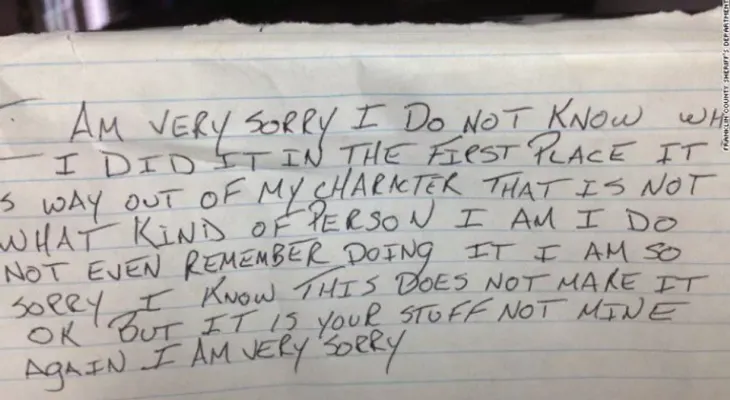 AM VERY SORRY I DO NOT KNOW WH
I DID IT IN THE FIRST PLACE IT
S WAY OUT OF MY CHARACTER THAT IS NOT
WHAT KIND OF PERSON I AM I DO
NOT EVEN REMEMBER DOING IT I AM SO
SORRY I KNOW THIS DOES NOT MAKE IT
OK BUT IT IS YOUR STUFF NOT MINE
AGAIN I AM VERY SORRY
FRANKLIN COUNTY SHERIFF'S DEPARTMENT